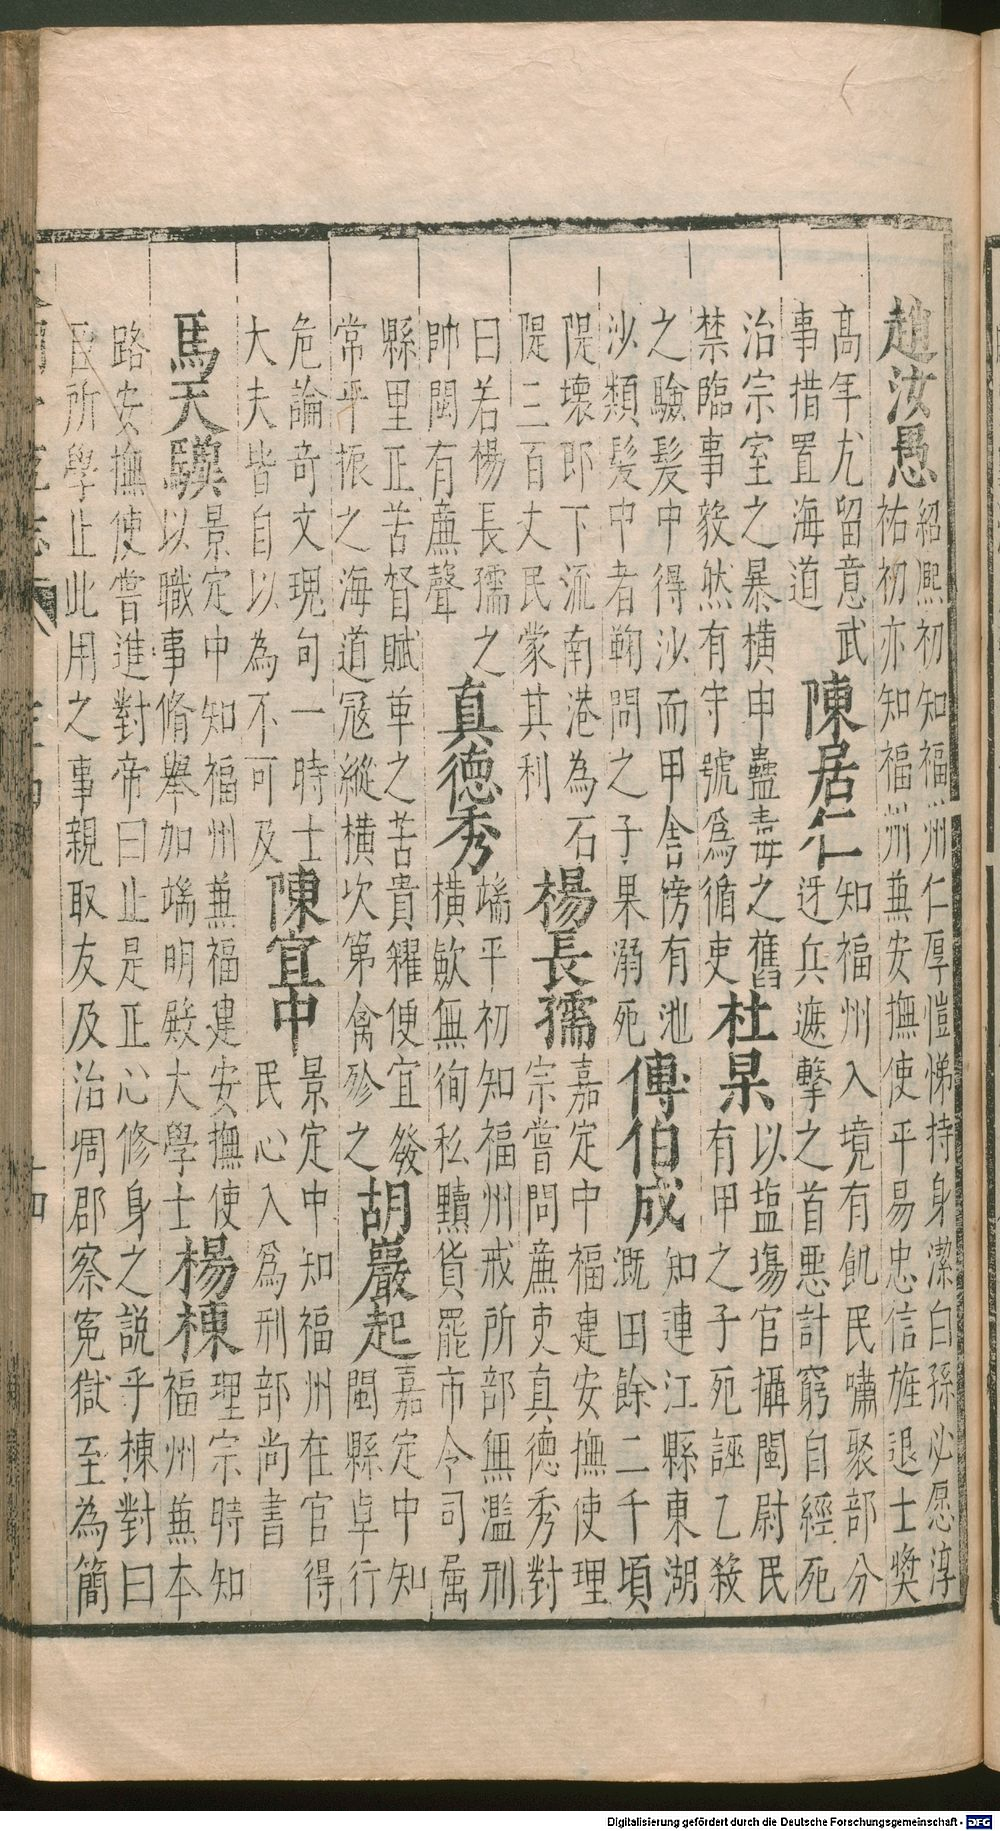 趙汝愚
紹熙初知福州仁厚愷悌持身潔白孫必愿淳
祐初亦知福州兼安撫使平易忠信旌退士奬
高年尤留意武
事措置海道
陳居仁
知福州入境有飢民嘯聚部分
迓兵遮擊之首悪計窮自經死
治宗室之暴橫申蠱毒之舊
禁臨事毅然有守號爲循吏
杜杲
以塩場官攝閩尉民
有甲之子死誣乙殺
之驗髮中得沙而甲舎傍有池
沙類髮中者鞫問之子果溺死
傅伯成
知連江縣東湖
溉田餘二千頃
隄壞即下流南港為石
隄三百丈民蒙其利
楊長孺
嘉定中福建安撫使理
宗嘗問亷吏真德秀對
曰若楊長孺之
帥閩有亷聲
真德秀
端平初知福州戒所部無濫刑
橫歛無徇私黷貨罷市令司屬
縣里正苦督賦革之苦貴糴便宜發
常平振之海道冦縱橫次第禽殄之
胡巖起
嘉定中知
閩縣卓行
危論奇文瑰句一時士
大夫皆自以為不可及
陳宜中
景定中知福州在官得
民心入爲刑部尚書
馬天驥
景定中知福州兼福建安撫使
以職事脩舉加端明殿大學士
楊棟
理宗時知
福州兼本
路安撫使嘗進對帝曰止是正心修身之説乎棟對曰
臣所學止此用之事親取友及治凋郡察寃獄至為簡
Digitalisierung gefördert durch die Deutsche Forschungsgemeinschaft - DFG